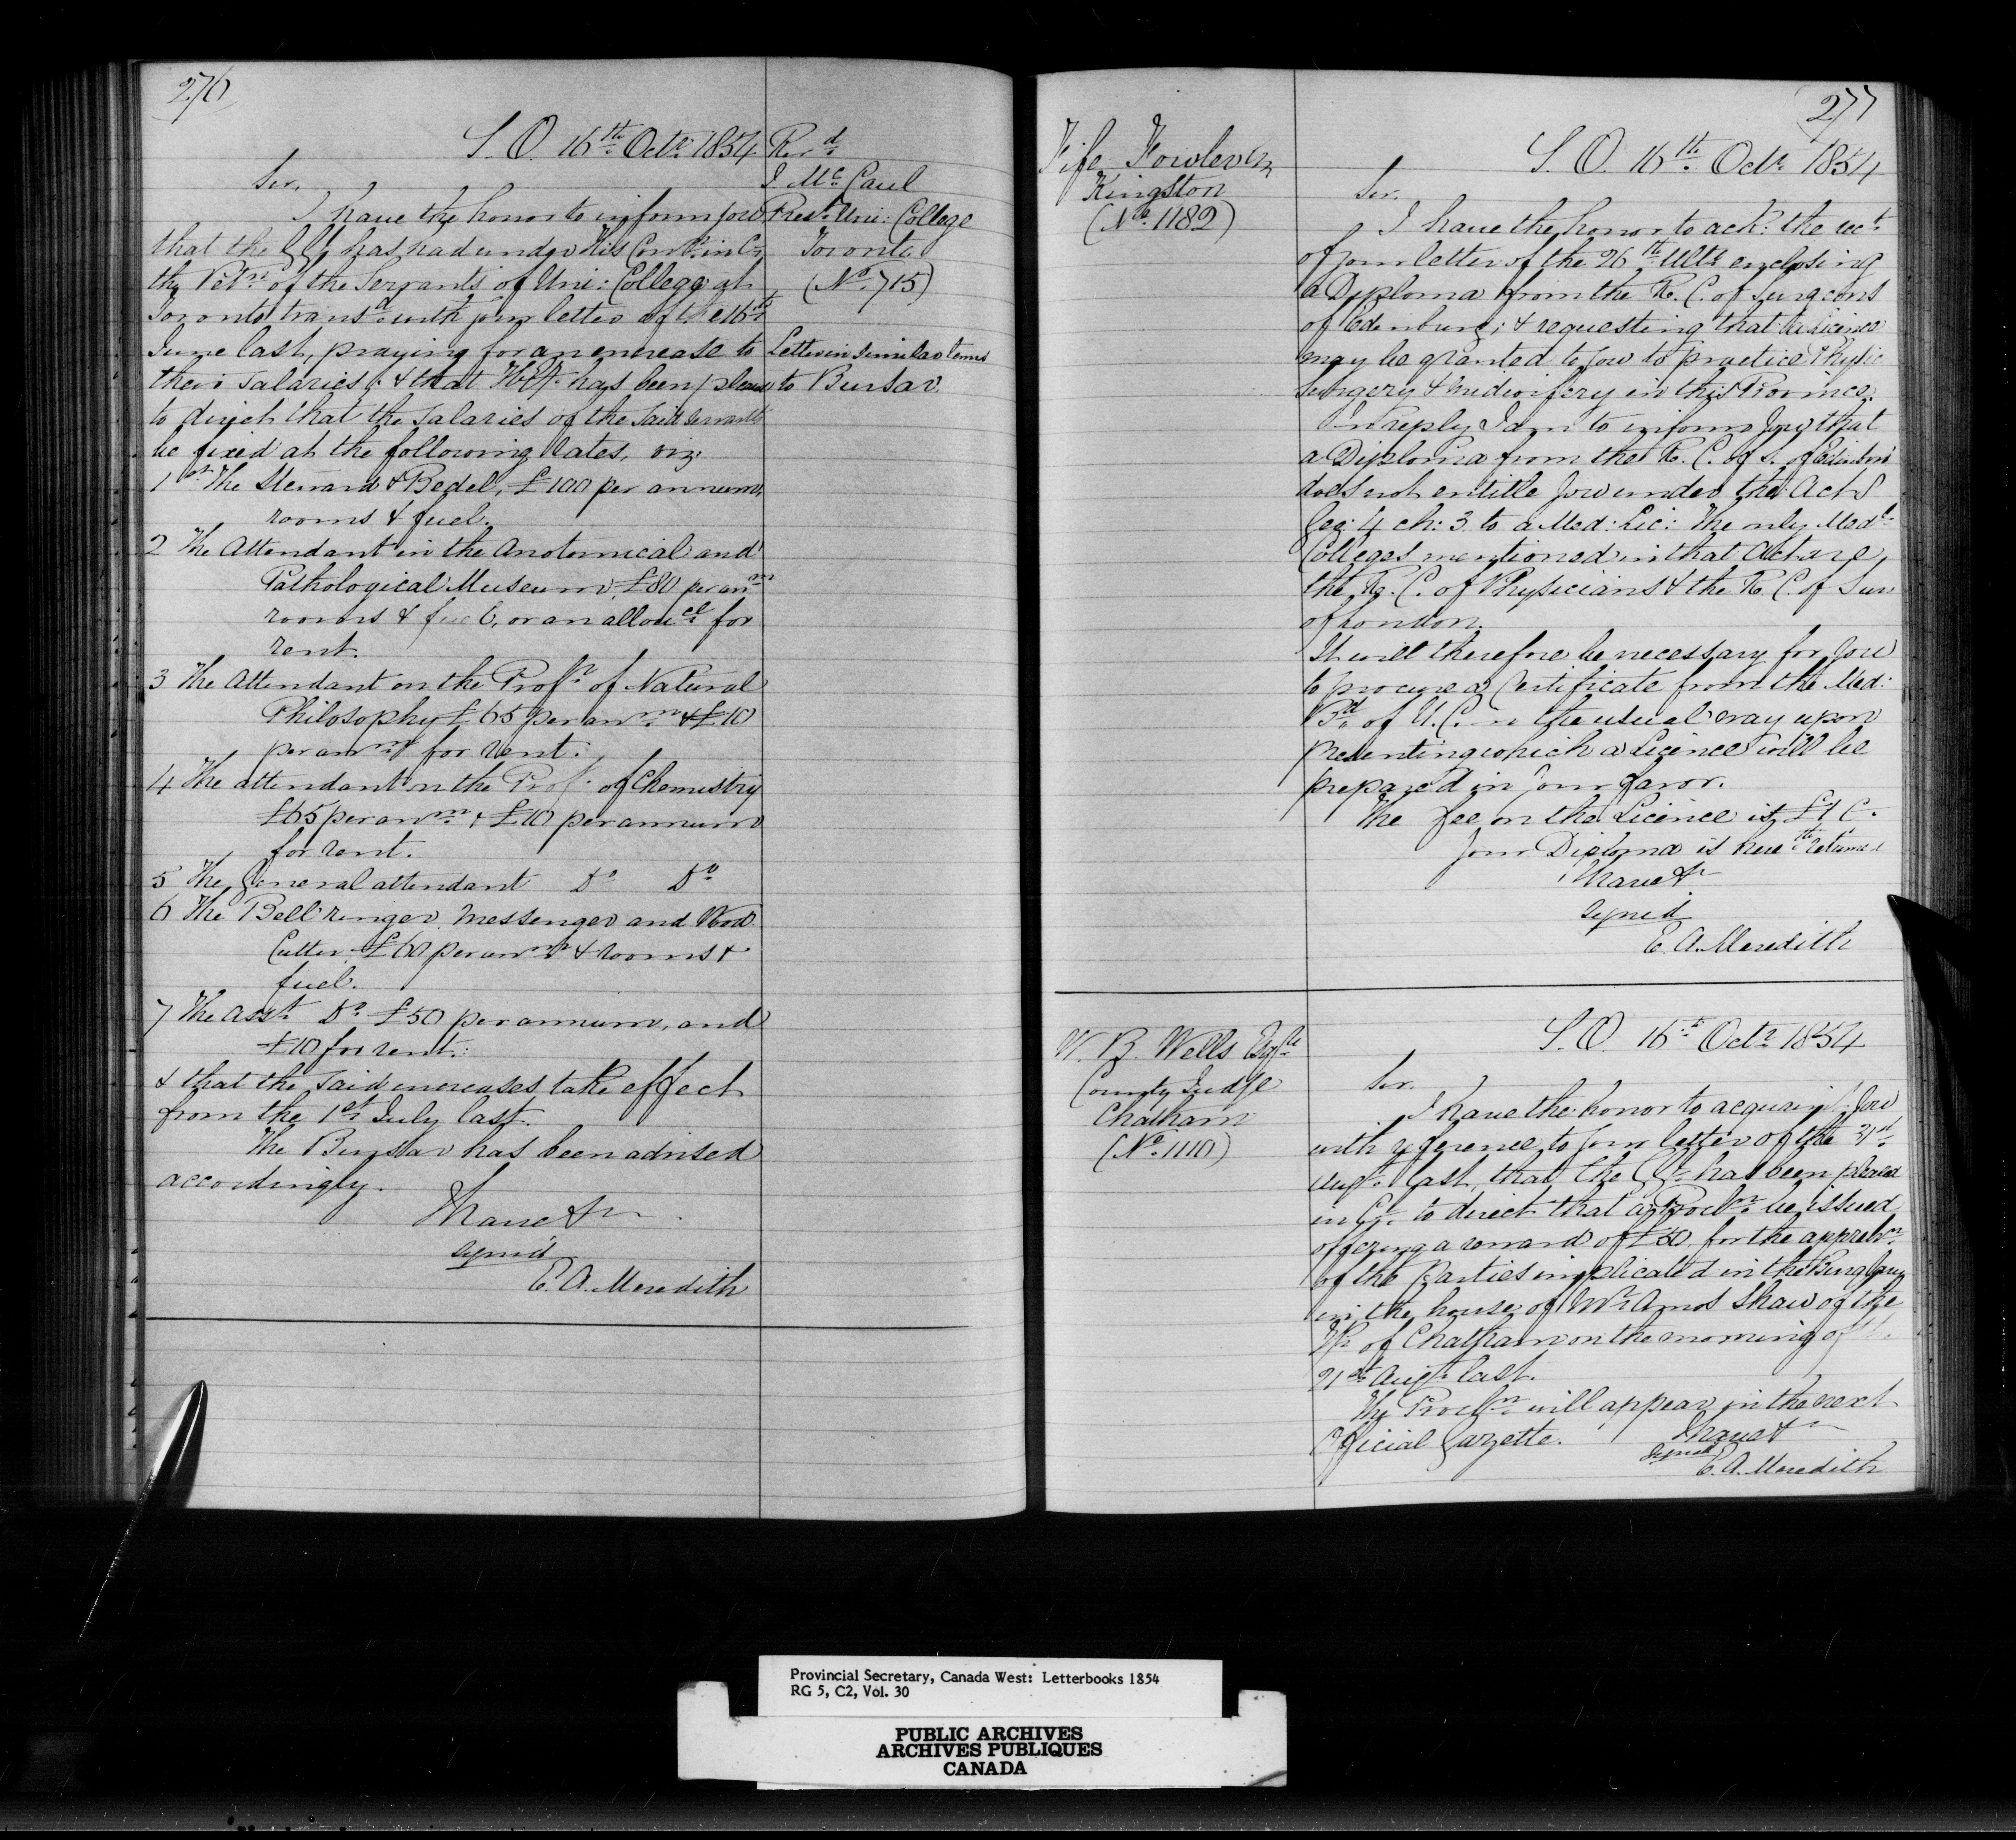 276
S. O. 16th Octr. 1854
Sir,
I have the honor to inform you
that the G. G. has had under His Consn. in C.
the Petn. of the Servants of Uni: College at
Toronto transd. with your letter of the 16th
June last, praying for an encrease to
their Salaries; & that H. E. has been pleased
to direct that the Salaries of the said Servants
be fixed at the following rates, viz.
1st The Steward & Bedel, £100 per annum,
rooms & fuel.
2 The Attendant in the Anatomical and
Pathological Museum, £80 per anm.
rooms & fuel, or an allowce. for
rent.
3 The Attendant on the Profr. of Natural
Philosophy £65 per anm. & £10
per anm. for rent.
4 The attendant on the Prof. of Chemistry
£65 per anm. & £10 per annum
for rent.
5 The General attendant Do. Do.
6 The Bell ringer, Messenger and Wood
Cutter, £60 per anm. & rooms &
fuel.
7 The Asst. Do. £50 per annum, and
£10 for rent.
& that the said increases take effect
from the 1st July last.
The Bursar has been advised
accordingly.
I have &c.
signed
E. A. Meredith
Revd.
J McCaul
Prest. Uni: College
Toronto
(No. 715)
Letter in similar terms
to Bursar
277
Fife Fowler
Kingston
(No. 1182)
S. O. 16th Octr. 1854
Sir,
I have the honor to ack: the rect.
of your letter of the 26th Ulto. enclosing
a Diploma from the R. C. of Surgeons
of Edinburg; & requesting that a Licence
may be granted to you to practice Physic
Surgery & Midwifery in this Province.
In reply I am to inform you that
a Diploma from the R. C. of S. of Edinburg
does not entitle you under the Act 8
Geo: 4 ch: 3 to a Med: Lic: The only Medl.
Colleges mentioned in that Act are,
the R. C. of Physicians & the R. C. of Sur
of London.
It will therefore be necessary for you
to procure a Certificate from the Med:
Bd. of U. C. in the usual way upon
presenting which a Licence will be
prepared in your favor.
The fee on the Licence is £1 C.
Your Diploma is herewth. returned
I have &c
signed
E. A. Meredith
W. B. Wells Esqre
County Judge
Chatham
(No. 1110)
S. O. 16th Octr. 1854
Sir,
I have the honor to acquaint you
with reference to your letter of the 31st
Augt. last, that the G. G. has been pleased
in C. to direct that a Proclmn. be issued
offering a reward of £50 for the apprehn.
of the Parties implicated in the Burglary
in the house of Mr. Amos Shaw of the
Tp. of Chatham on the morning of
21st Augt. last.
The Proclmn. will appear in the next
Official Gazette. I have &c
signed
E. A. Meredith
Provincial Secretary, Canada West: Letterbooks 1854
RG 5, C2, Vol. 30
PUBLIC ARCHIVES
ARCHIVES PUBLIQUES
CANADA